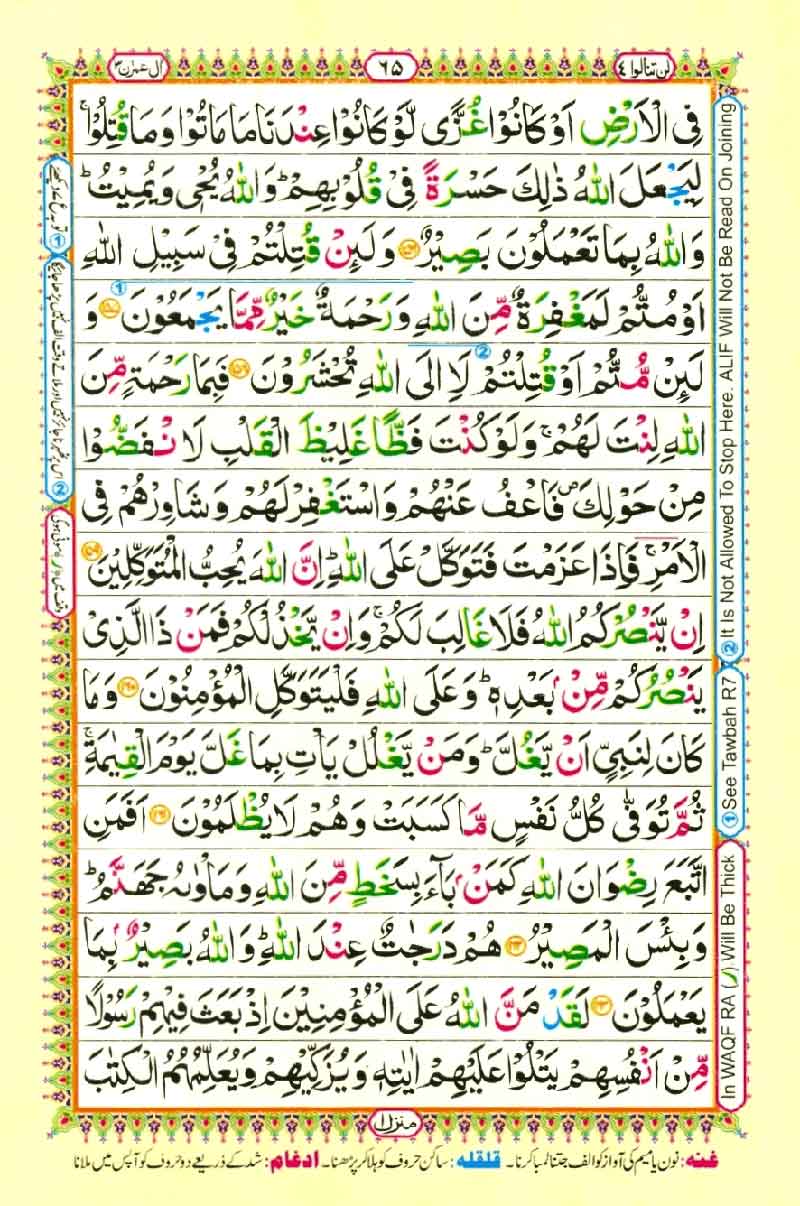 لن تنالوا ٤
٦٥
اٰل عمرٰن ٣
فِى الْاَرْضِ اَوْ كَانُوْا غُزًّى لَّوْ كَانُوْا عِنْدَنَا مَا مَاتُوْا وَمَا قُتِلُوْا ۚ
لِيَجْعَلَ اللّٰهُ ذٰلِكَ حَسْرَةً فِىْ قُلُوْبِهِمْ ؕ وَاللّٰهُ يُحْىٖ وَيُمِيْتُ ؕ
وَاللّٰهُ بِمَا تَعْمَلُوْنَ بَصِيْرٌ ﴿۱۵۶﴾ وَلَئِنْ قُتِلْتُمْ فِىْ سَبِيْلِ اللّٰهِ
اَوْ مُتُّمْ لَمَغْفِرَةٌ مِّنَ اللّٰهِ وَرَحْمَةٌ خَيْرٌ مِّمَّا يَجْمَعُوْنَ ﴿۱۵۷﴾ وَ
لَئِنْ مُّتُّمْ اَوْ قُتِلْتُمْ لَاۡ اِلَى اللّٰهِ تُحْشَرُوْنَ ﴿۱۵۸﴾ فَبِمَا رَحْمَةٍ مِّنَ
اللّٰهِ لِنْتَ لَهُمْ ۚ وَلَوْ كُنْتَ فَظًّا غَلِيْظَ الْقَلْبِ لَا نْفَضُّوْا
مِنْ حَوْلِكَ ۪ فَاعْفُ عَنْهُمْ وَاسْتَغْفِرْ لَهُمْ وَشَاوِرْهُمْ فِى
الْاَمْرِ ۚ فَاِذَا عَزَمْتَ فَتَوَكَّلْ عَلَى اللّٰهِ ؕ اِنَّ اللّٰهَ يُحِبُّ الْمُتَوَكِّلِيْنَ ﴿۱۵۹﴾
اِنْ يَّنْصُرْكُمُ اللّٰهُ فَلَا غَالِبَ لَكُمْ ۚ وَاِنْ يَّخْذُلْكُمْ فَمَنْ ذَا الَّذِىْ
يَنْصُرُكُمْ مِّنْۢ بَعْدِهٖ ؕ وَعَلَى اللّٰهِ فَلْيَتَوَكَّلِ الْمُؤْمِنُوْنَ ﴿۱۶۰﴾ وَمَا
كَانَ لِنَبِىٍّ اَنْ يَّغُلَّ ؕ وَمَنْ يَّغْلُلْ يَاْتِ بِمَا غَلَّ يَوْمَ الْقِيٰمَةِ ۚ
ثُمَّ تُوَفّٰى كُلُّ نَفْسٍ مَّا كَسَبَتْ وَهُمْ لَا يُظْلَمُوْنَ ﴿۱۶۱﴾ اَفَمَنِ
اتَّبَعَ رِضْوَانَ اللّٰهِ كَمَنْۢ بَآءَ بِسَخَطٍ مِّنَ اللّٰهِ وَمَاْوٰىهُ جَهَنَّمُ ؕ
وَبِئْسَ الْمَصِيْرُ ﴿۱۶۲﴾ هُمْ دَرَجٰتٌ عِنْدَ اللّٰهِ ؕ وَاللّٰهُ بَصِيْرٌۢ بِمَا
يَعْمَلُوْنَ ﴿۱۶۳﴾ لَقَدْ مَنَّ اللّٰهُ عَلَى الْمُؤْمِنِيْنَ اِذْ بَعَثَ فِيْهِمْ رَسُوْلًا
مِّنْ اَنْفُسِهِمْ يَتْلُوْا عَلَيْهِمْ اٰيٰتِهٖ وَيُزَكِّيْهِمْ وَيُعَلِّمُهُمُ الْكِتٰبَ
منزل ١
غنه: نون یا میم کی آواز کو الف جتنا لمبا کرنا۔ قلقله: ساکن حروف کو ہلا کر پڑھنا۔ ادغام: شد کے ذریعے دو حروف کو آپس میں ملانا
In WAQF RA (ر) Will Be Thick
① See Tawbah R7 ② It Is Not Allowed To Stop Here. ALIF Will Not Be Read On Joining